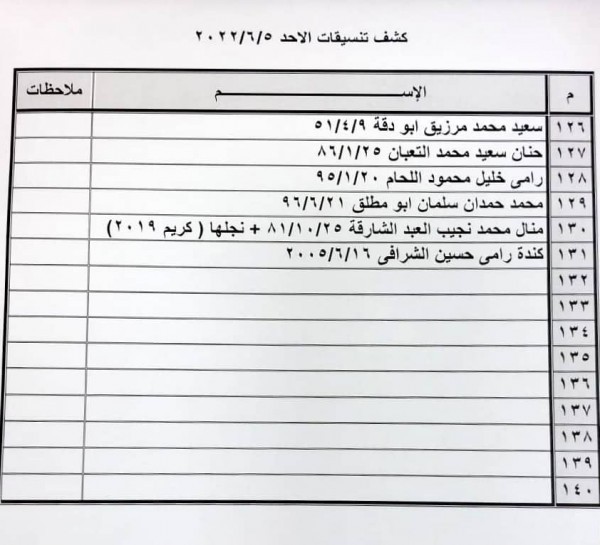 كشف تنسيقات الاحد ٢٠٢٢/٦/٥
م الإســـــم ملاحظات
١٢٦ سعيد محمد مرزيق ابو دقة ٥١/٤/٩
١٢٧ حنان سعيد محمد التعبان ٨٦/١/٢٥
١٢٨ رامى خليل محمود اللحام ٩٥/١/٢٠
١٢٩ محمد حمدان سلمان ابو مطلق ٩٦/٦/٢١
١٣٠ منال محمد نجيب العبد الشارقة ٨١/١٠/٢٥ + نجلها ( كريم ٢٠١٩)
١٣١ كندة رامى حسين الشرافى ٢٠٠٥/٦/١٦
١٣٢
١٣٣
١٣٤
١٣٥
١٣٦
١٣٧
١٣٨
١٣٩
١٤٠